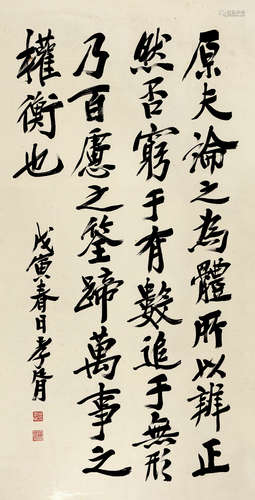 原夫論之為體所以辨正
然否窮于有數追于無形
乃百慮之筌蹄萬事之
權衡也
戊寅春日孝胥